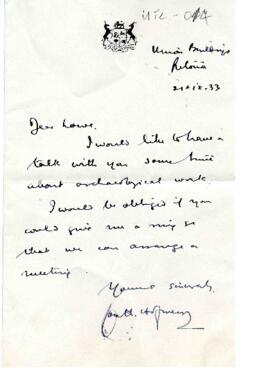 Union Buildings
Pretoria
21.ix.33
Dear Lowe,
I would like to have a
talk with you some time
about archaeological work.
I would be obliged if you
could give me a ring so
that we can arrange a
meeting.
Yours sincerely,